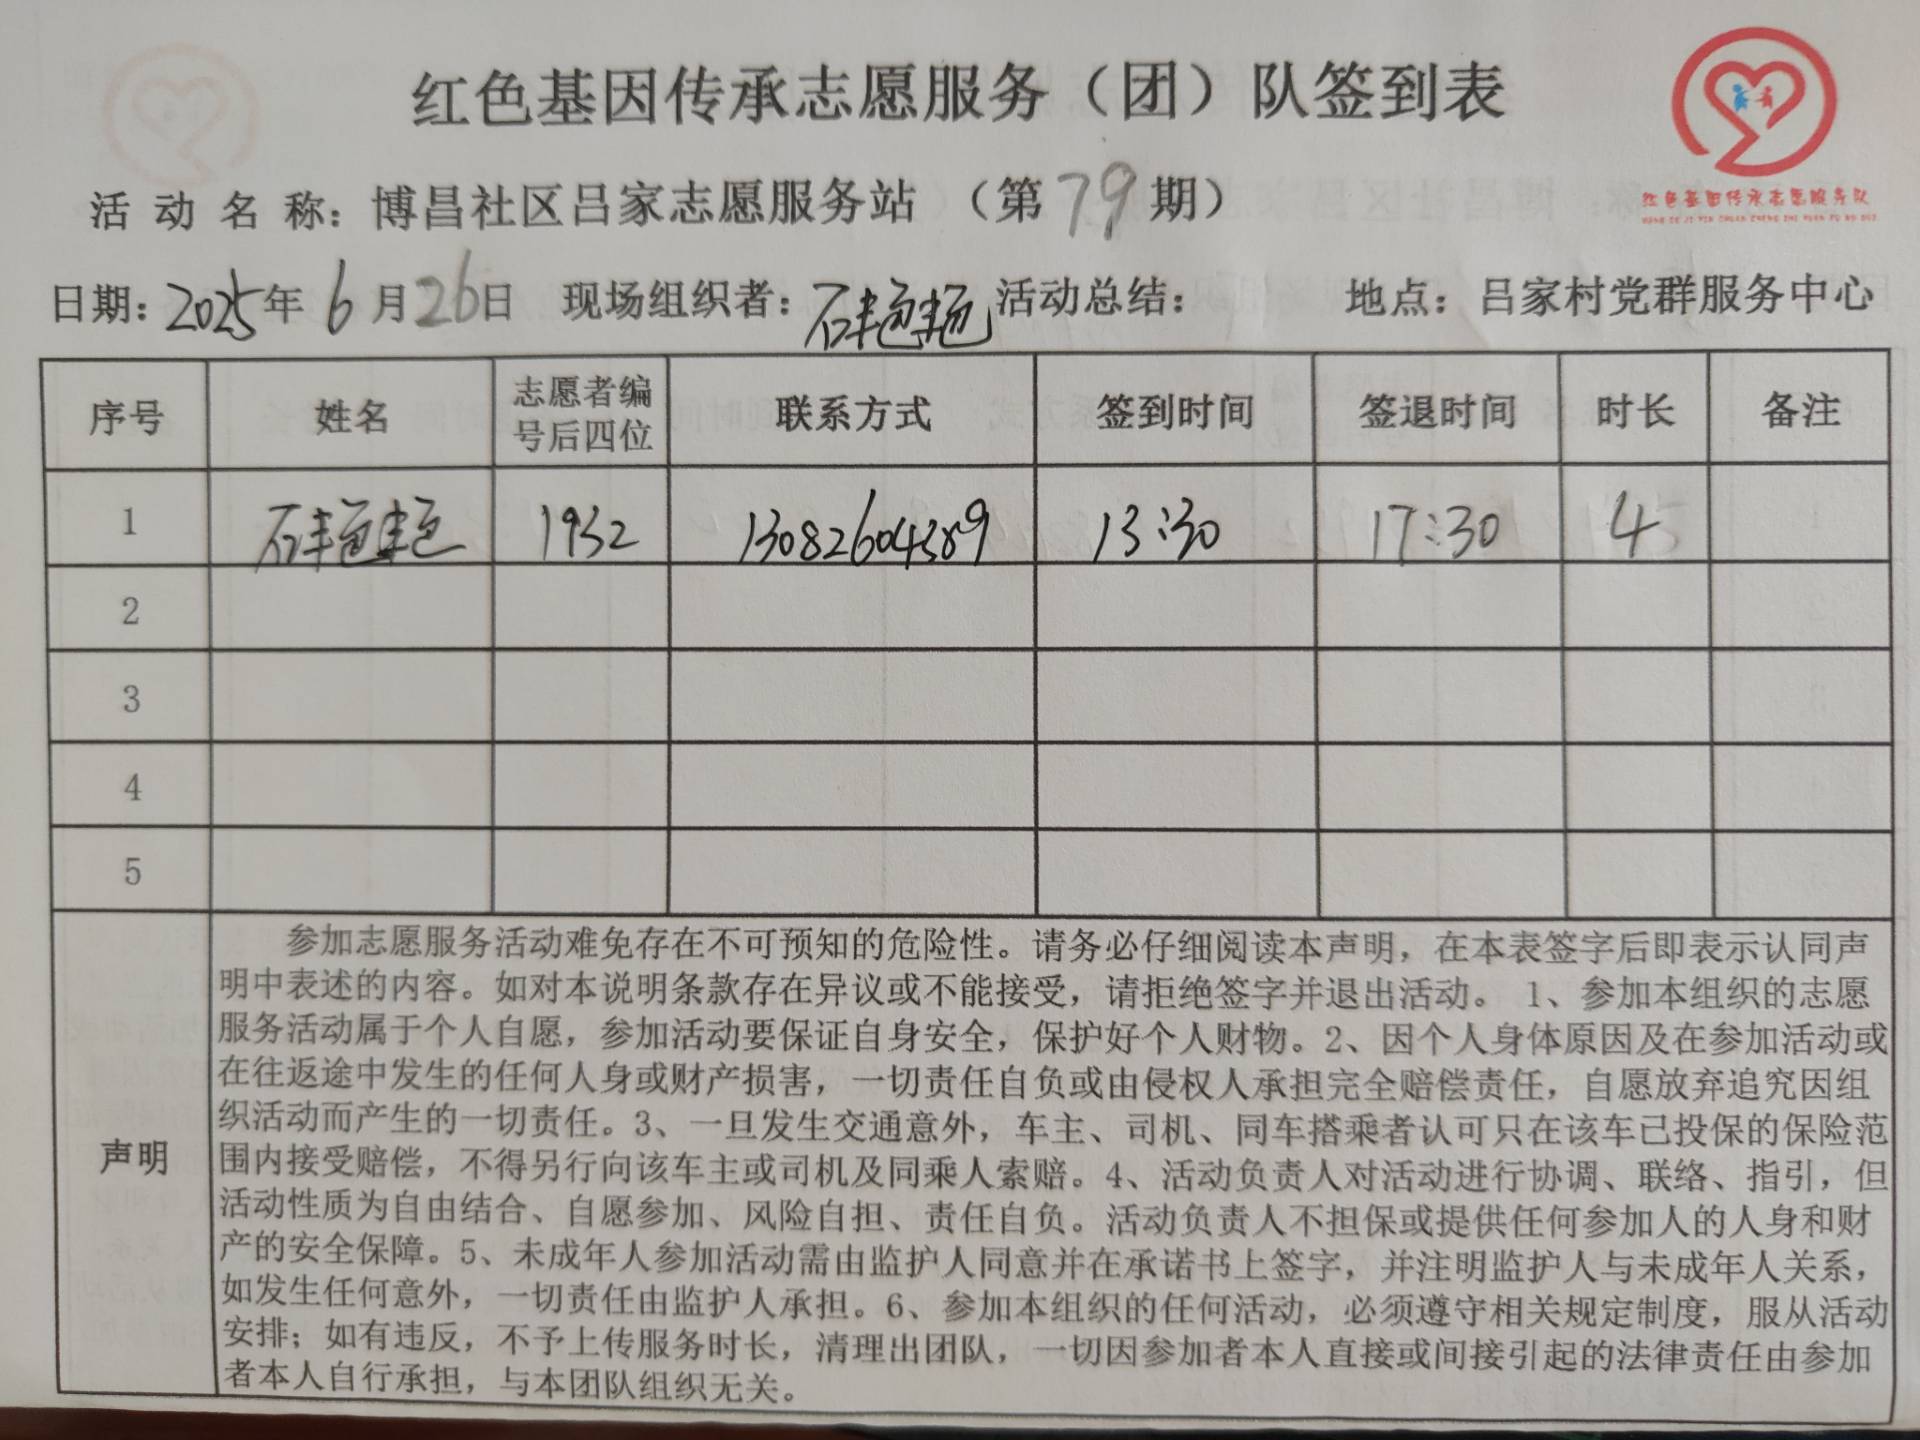 红色基因传承志愿服务（团）队签到表
红色基因传承志愿服务队
HONG SE JI YIN CHUAN CHENG ZHI YUAN FU WU DUI
活动名称：博昌社区吕家志愿服务站 （第79期）
日期：2025年6月26日 现场组织者：石艳艳 活动总结： 地点：吕家村党群服务中心
序号 姓名 志愿者编号后四位 联系方式 签到时间 签退时间 时长 备注
1 石艳艳 1932 13082604389 13:30 17:30 4
2
3
4
5
声明
参加志愿服务活动难免存在不可预知的危险性。请务必仔细阅读本声明，在本表签字后即表示认同声
明中表述的内容。如对本说明条款存在异议或不能接受，请拒绝签字并退出活动。 1、参加本组织的志愿
服务活动属于个人自愿，参加活动要保证自身安全，保护好个人财物。2、因个人身体原因及在参加活动或
在往返途中发生的任何人身或财产损害，一切责任自负或由侵权人承担完全赔偿责任，自愿放弃追究因组
织活动而产生的一切责任。3、一旦发生交通意外，车主、司机、同车搭乘者认可只在该车已投保的保险范
围内接受赔偿，不得另行向该车主或司机及同乘人索赔。4、活动负责人对活动进行协调、联络、指引，但
活动性质为自由结合、自愿参加、风险自担、责任自负。活动负责人不担保或提供任何参加人的人身和财
产的安全保障。5、未成年人参加活动需由监护人同意并在承诺书上签字，并注明监护人与未成年人关系，
如发生任何意外，一切责任由监护人承担。6、参加本组织的任何活动，必须遵守相关规定制度，服从活动
安排；如有违反，不予上传服务时长，清理出团队，一切因参加者本人直接或间接引起的法律责任由参加
者本人自行承担，与本团队组织无关。